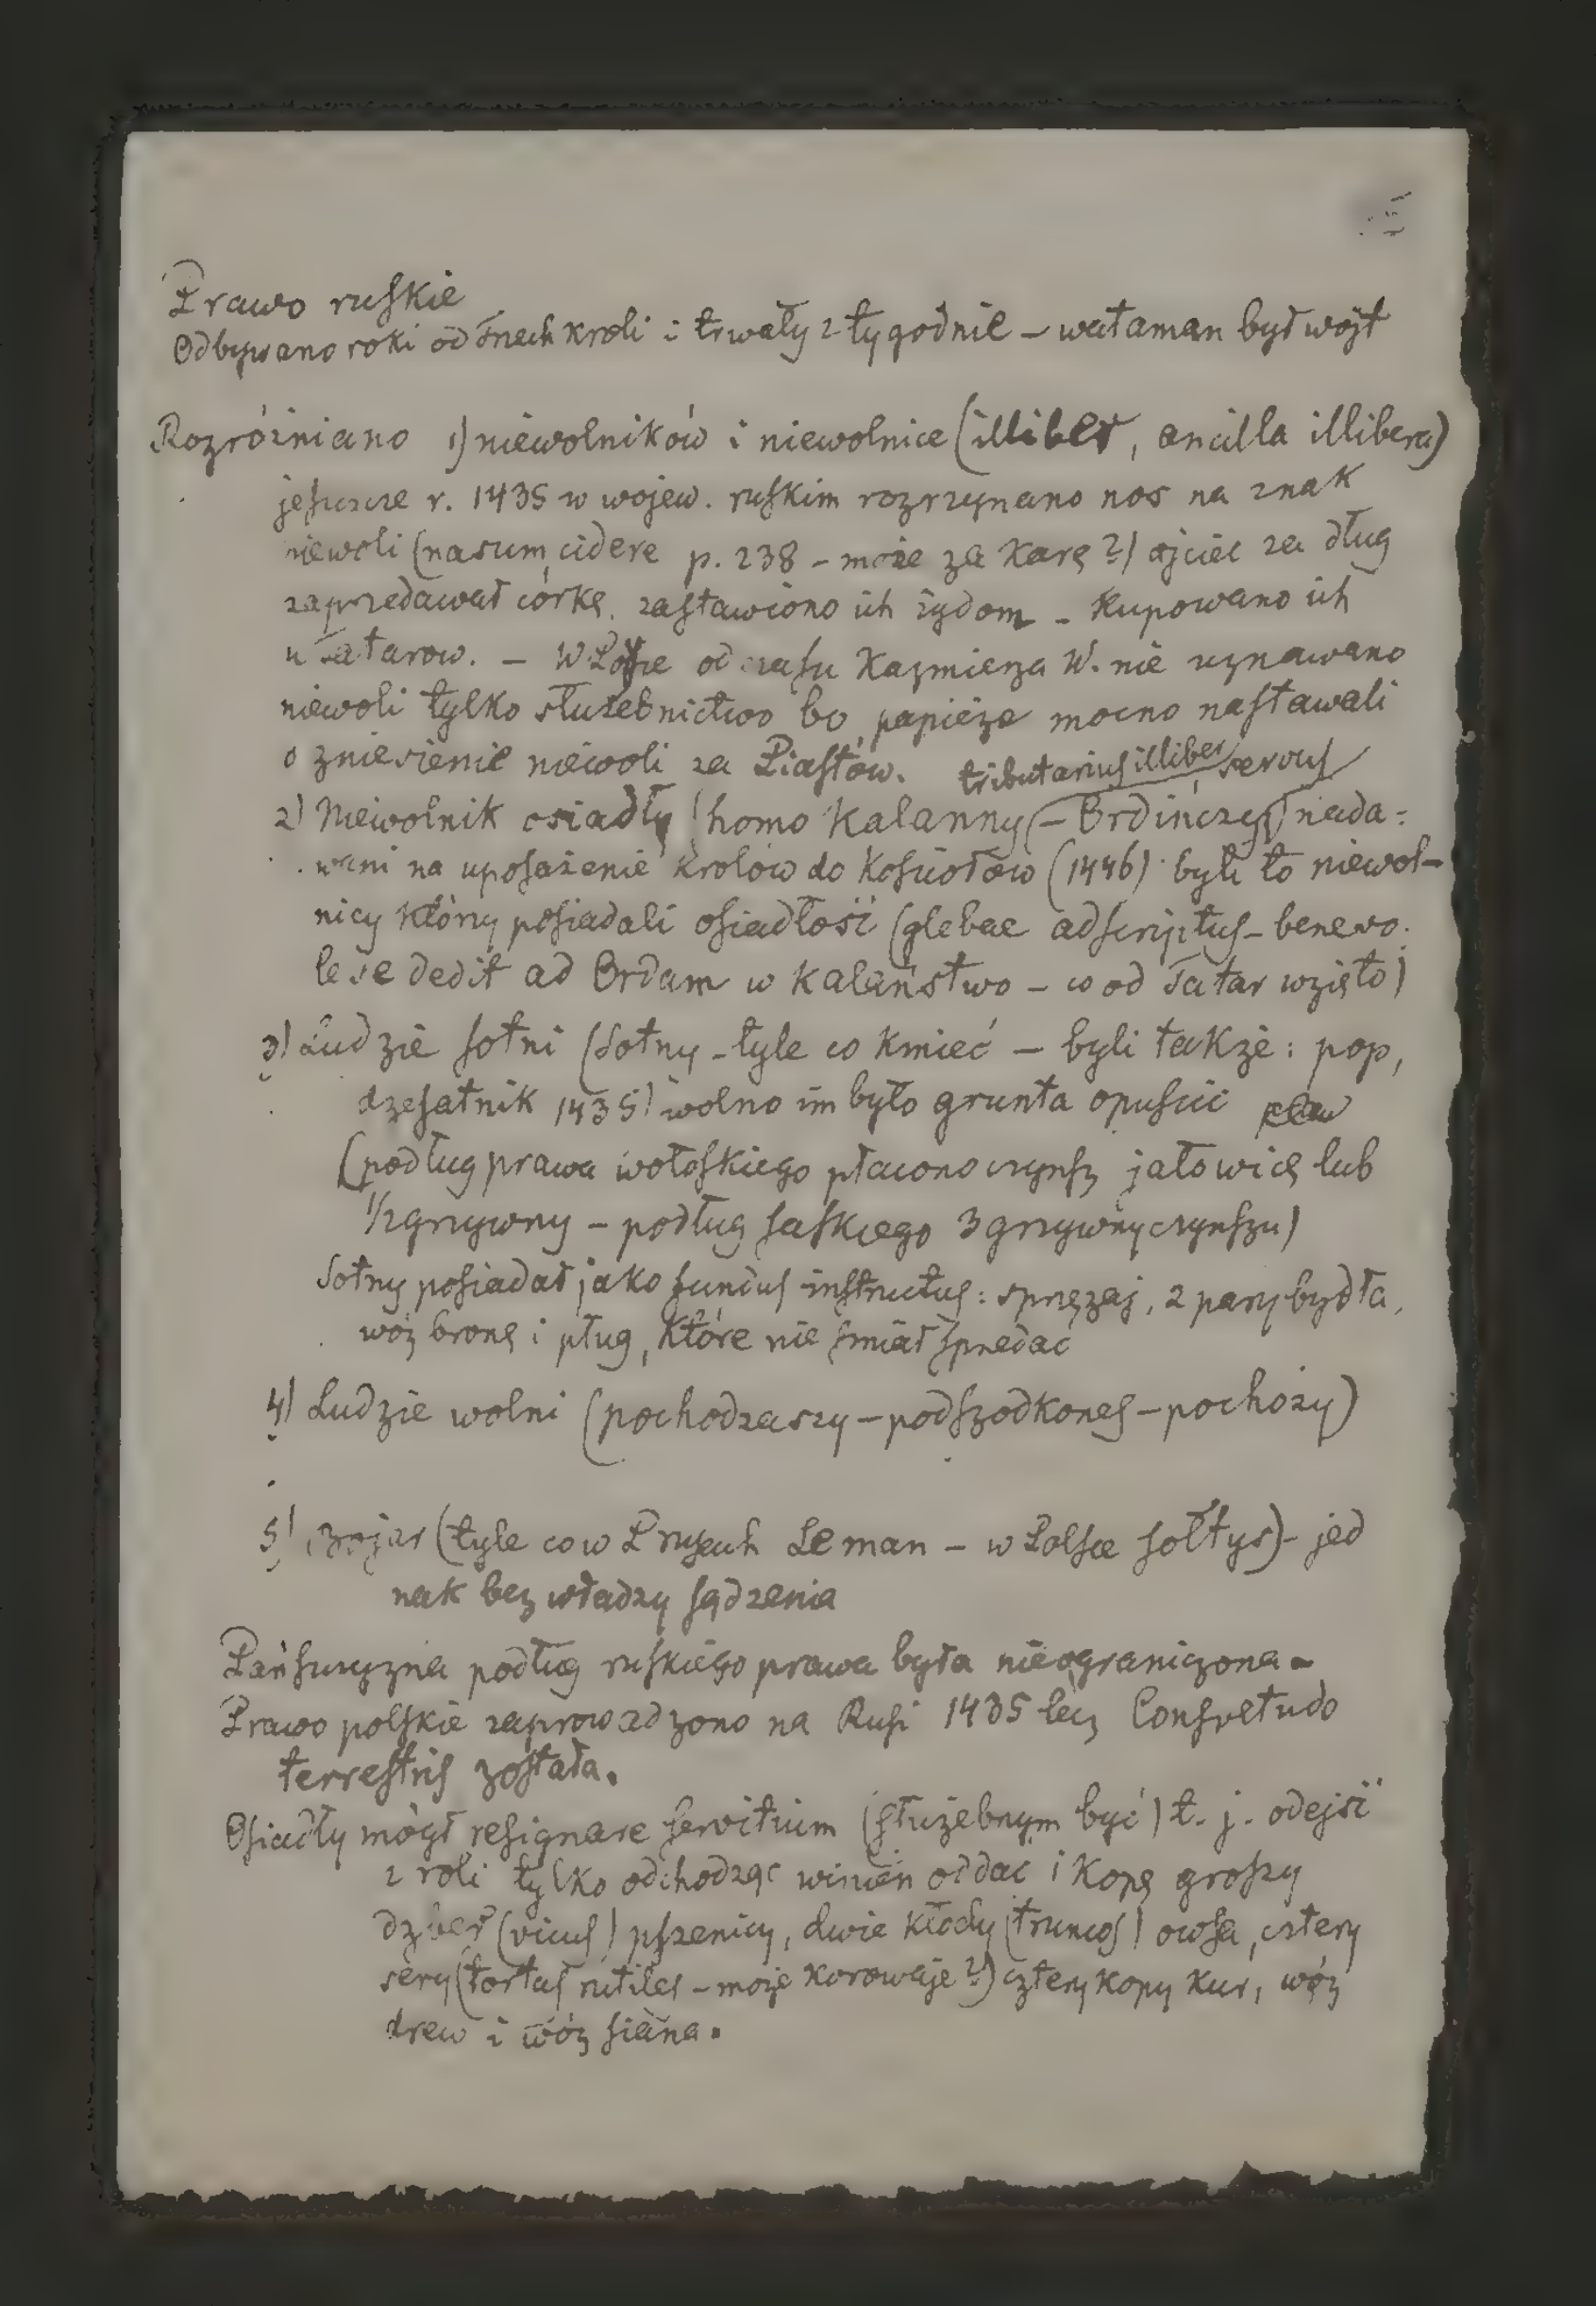 Prawo ruskie
Odbywano roki od Trzech kroli i trwały 2 tygodnie – wataman był wójt
Rozróżniano 1) niewolników i niewolnice (illiber, ancilla illibera)
jeszcze r. 1435 w wojew. ruskim rozrzynano nos na znak
niewoli (nasum cidere p. 238 – może za karę?) ojciec za dług
zaprzedawał córkę. zastawiono ich żydom – Kupowano ich
u Tatarow. – W Polsce od czasu Kazmierza W. nie uznawano
niewoli tylko służebnictwo bo papieże mocno nastawali
o zniesienie niewoli za Piastów. tributarius illiber servus
2) Niewolnik osiadły (homo Kalanny – Ordińczyς) nada=
wani na uposażenie krolów do Kościołow (1446) byli to niewol–
nicy którzy posiadali osiadłość (glebae adscriptus – benevo.
le se dedit ad Ordam w Kalaństwo – co od Tatar wzięto)
3) Ludzie sotni (Sotny – tyle co Kmieć – byli także: pop,
dzesatnik 1435) wolno im było grunta opuścić
(podług prawa wołoskiego płacono czynsz jałowicę lub
1/2 grzywny – podług saskiego 3 grzywny czynszu)
Sotny posiadał jako fundus instructus: sprzężaj, 2 pary bydła,
wóz bronę i pług, które nie śmiał sprzedac
4) Ludzie wolni (pochodzaszy – podszodkones – pochoży)
5) Bojar (tyle co w Prusech Leman – w Polsce sołtys) – jed
nak bez władzy sądzenia
Pańszczyzna podług ruskiego prawa była nieograniczona –
Prawo polskie zaprowadzono na Rusi 1435 lecz Consvetudo
terrestris została.
Osiadły mógł resignare servitium (służebnym być) t. j. odejść
z roli tylko odchodząc winień oddac i Kopę groszy
dzber (vicus) pszenicy, dwie kłody (truncos) owsa, cztery
sery (tortas rutiles – może korowaje?) cztery kopy kur, wóz
drew i wóz siana.